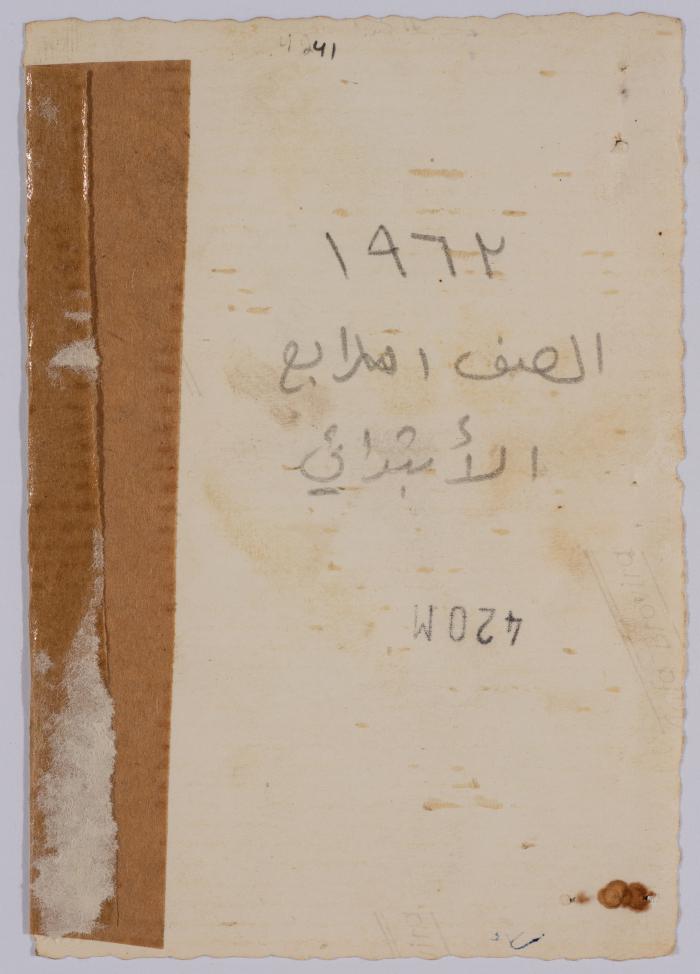 41
١٩٦٢
الصف الرابع
الأبتدائي
420M